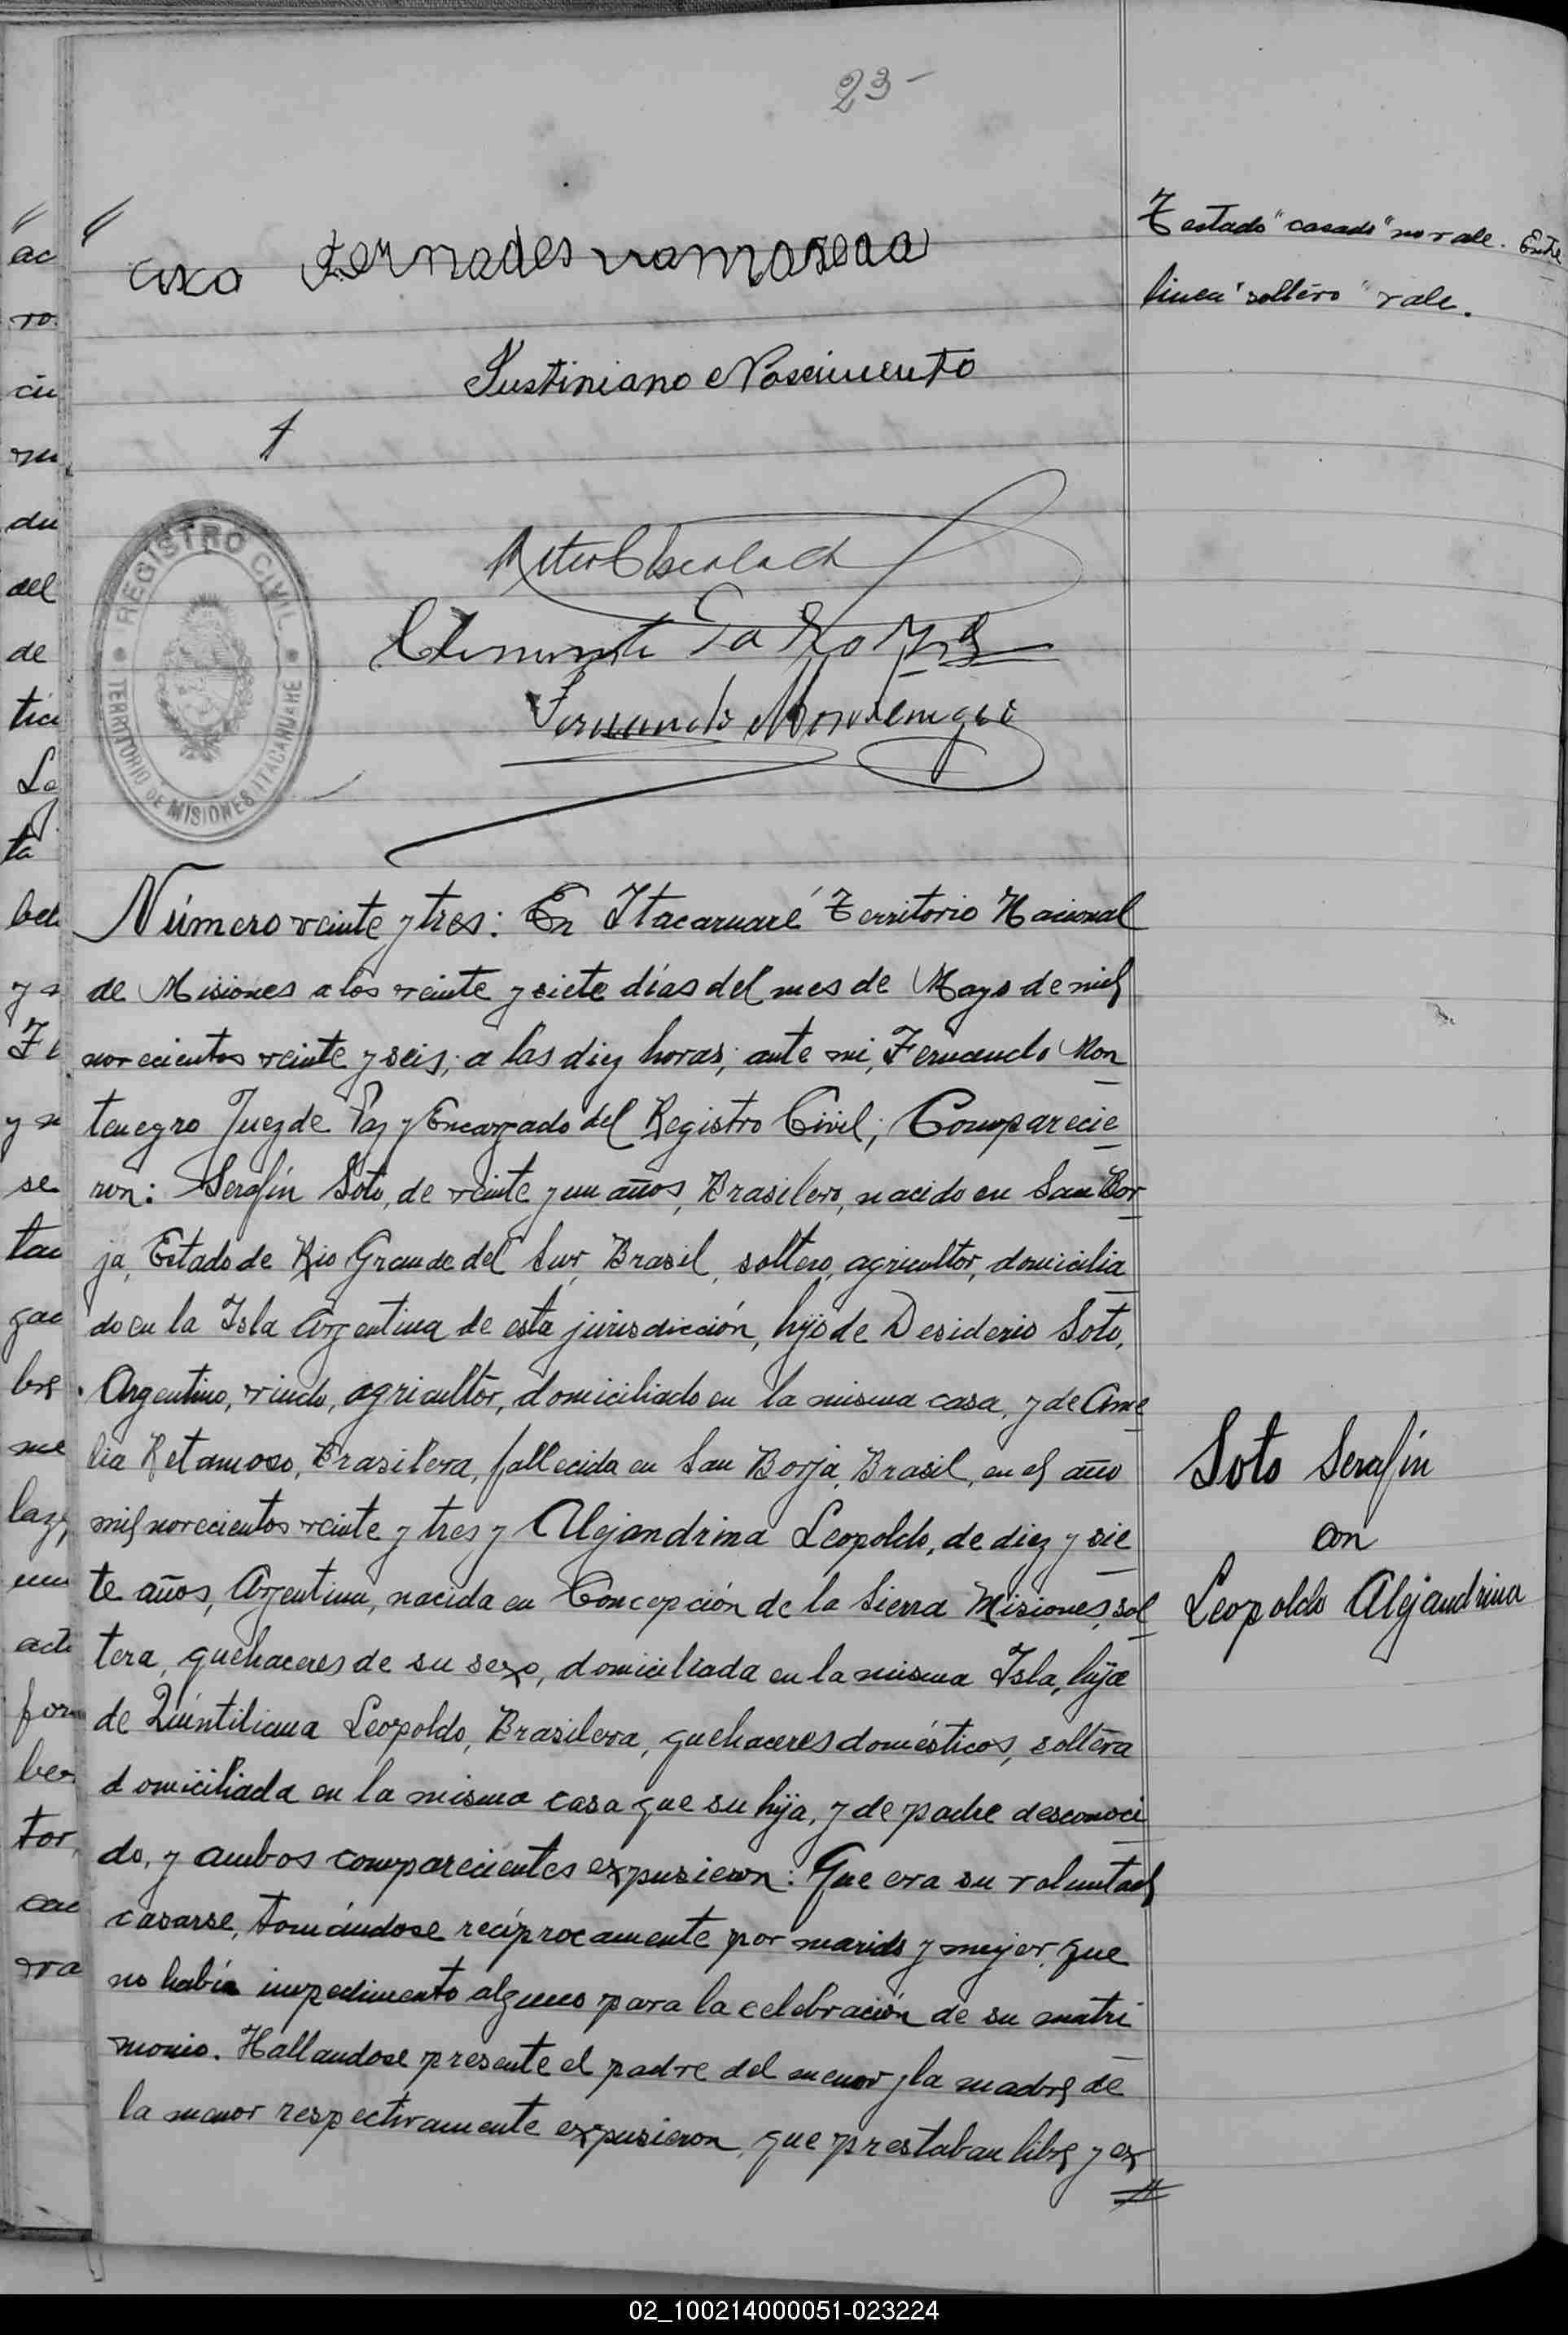 23-
Testado "casado" no vale. Entre
linea "soltero" vale.
Justiniano Nascimento
REGISTRO CIVIL
TERRITORIO DE MISIONES ITACARUARE
Fernando Montenegro
Número veinte y tres: En Itacaruaré Territorio Nacional
de Misiones a los veinte y siete días del mes de Mayo de mil
novecientos veinte y seis; a las diez horas; ante mi, Fernando Mon
tenegro Juez de Paz y Encargado del Registro Civil; Comparecie
ron: Serafín Soto, de veinte y un años, Brasilero, nacido en San Bor
ja, Estado de Rio Grande del Sur, Brasil, soltero, agricultor, domicilia
do en la Isla Argentina de esta jurisdicción, hijo de Desiderio Soto,
Argentino, viudo, agricultor, domiciliado en la misma casa, y de Ame
lia Retamoso, Brasilera, fallecida en San Borja, Brasil, en el año
mil novecientos veinte y tres y Alejandrina Leopoldo, de diez y sie
te años, Argentina, nacida en Concepción de la Sierra Misiones, sol
tera, quehaceres de su sexo, domiciliada en la misma Isla, hija
de Quintiliana Leopoldo, Brasilera, quehaceres domésticos, soltera
domiciliada en la misma casa que su hija, y de padre desconoci
do, y ambos comparecientes expusieron: Que era su voluntad
casarse, tomándose recíprocamente por marido y mujer, que
no había impedimento alguno para la celebración de su matri
monio. Hallandose presente el padre del menor y la madre de
la menor respectivamente expusieron, que prestaban libre y ex
Soto Serafín
con
Leopoldo Alejandrina
ac
ro
cu
du
del
de
La
ta
y a
se
tor
02_100214000051-023224